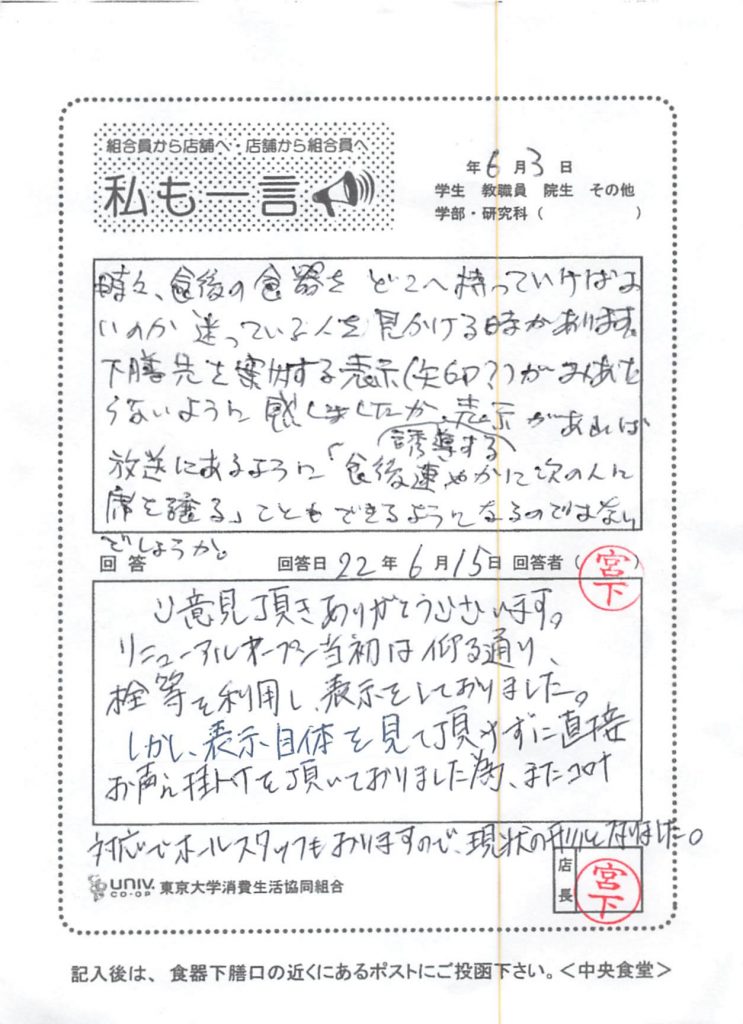 組合員から店舗へ・店舗から組合員へ
私も一言
年 6 月 3 日
学生 教職員 院生 その他
学部・研究科（ ）
時々、食後の食器を どこへ持っていけばよ
いのか 迷っている人を 見かける時があります。
下膳先を案内する表示(矢印?)が まくあも
うないように 感じましたが、表示があれば
誘導する
放送にあるように「食後速やかに次の人に
席を譲る」こともできるようになるのではない
でしょうか。
回答 回答日 22 年 6 月 15 日 回答者（宮下）
ご意見頂きありがとうございます。
リニューアルオープン当初は仰る通り、
栓等を利用し、表示をしておりました。
しかし、表示自体を見て頂けずに直接
お声え掛けを頂いておりました為、またコロナ
対応でホールスタッフもおりますので、現状の形となりました。
UNIV. CO-OP 東京大学消費生活協同組合
店長 宮下
記入後は、食器下膳口の近くにあるポストにご投函下さい。＜中央食堂＞